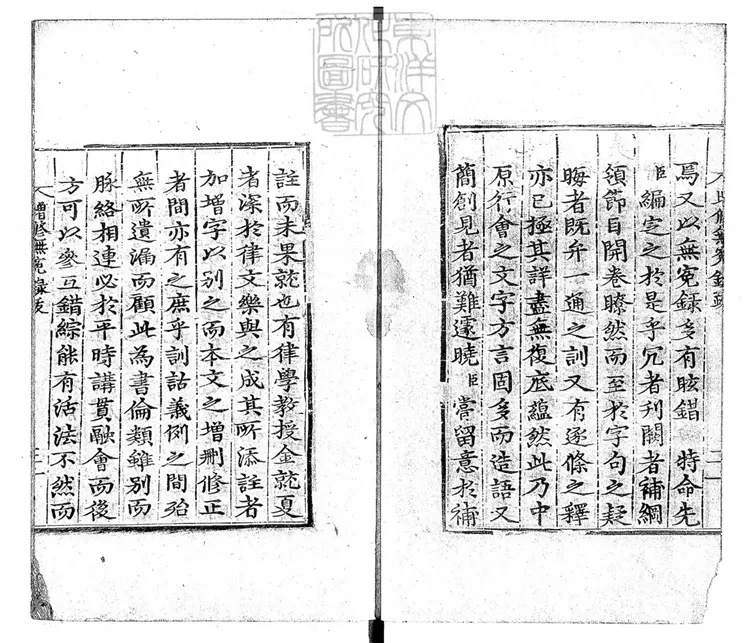 增修無冤錄跋
二
焉又以無冤錄多有眩錯 特命先
臣編定之於是乎冗者刊闕者補綱
領節目開卷瞭然而至於字句之疑
晦者既弁一通之訓又有逐條之釋
亦已極其詳盡無復底蘊然此乃中
原行會之文字方言固多而造語又
簡創見者猶難遽曉臣嘗留意於補
註而未果就也有律學教授金就夏
者深於律文樂與之成其所添註者
加增字以別之而本文之增刪修正
者間亦有之庶乎訓詁義例之間殆
無所遺漏而顧此為書倫類雖別而
脉絡相連必於平時講貫融會而後
方可以參互錯綜能有活法不然而
增修無冤錄跋
三
東洋文
化研究
所圖書